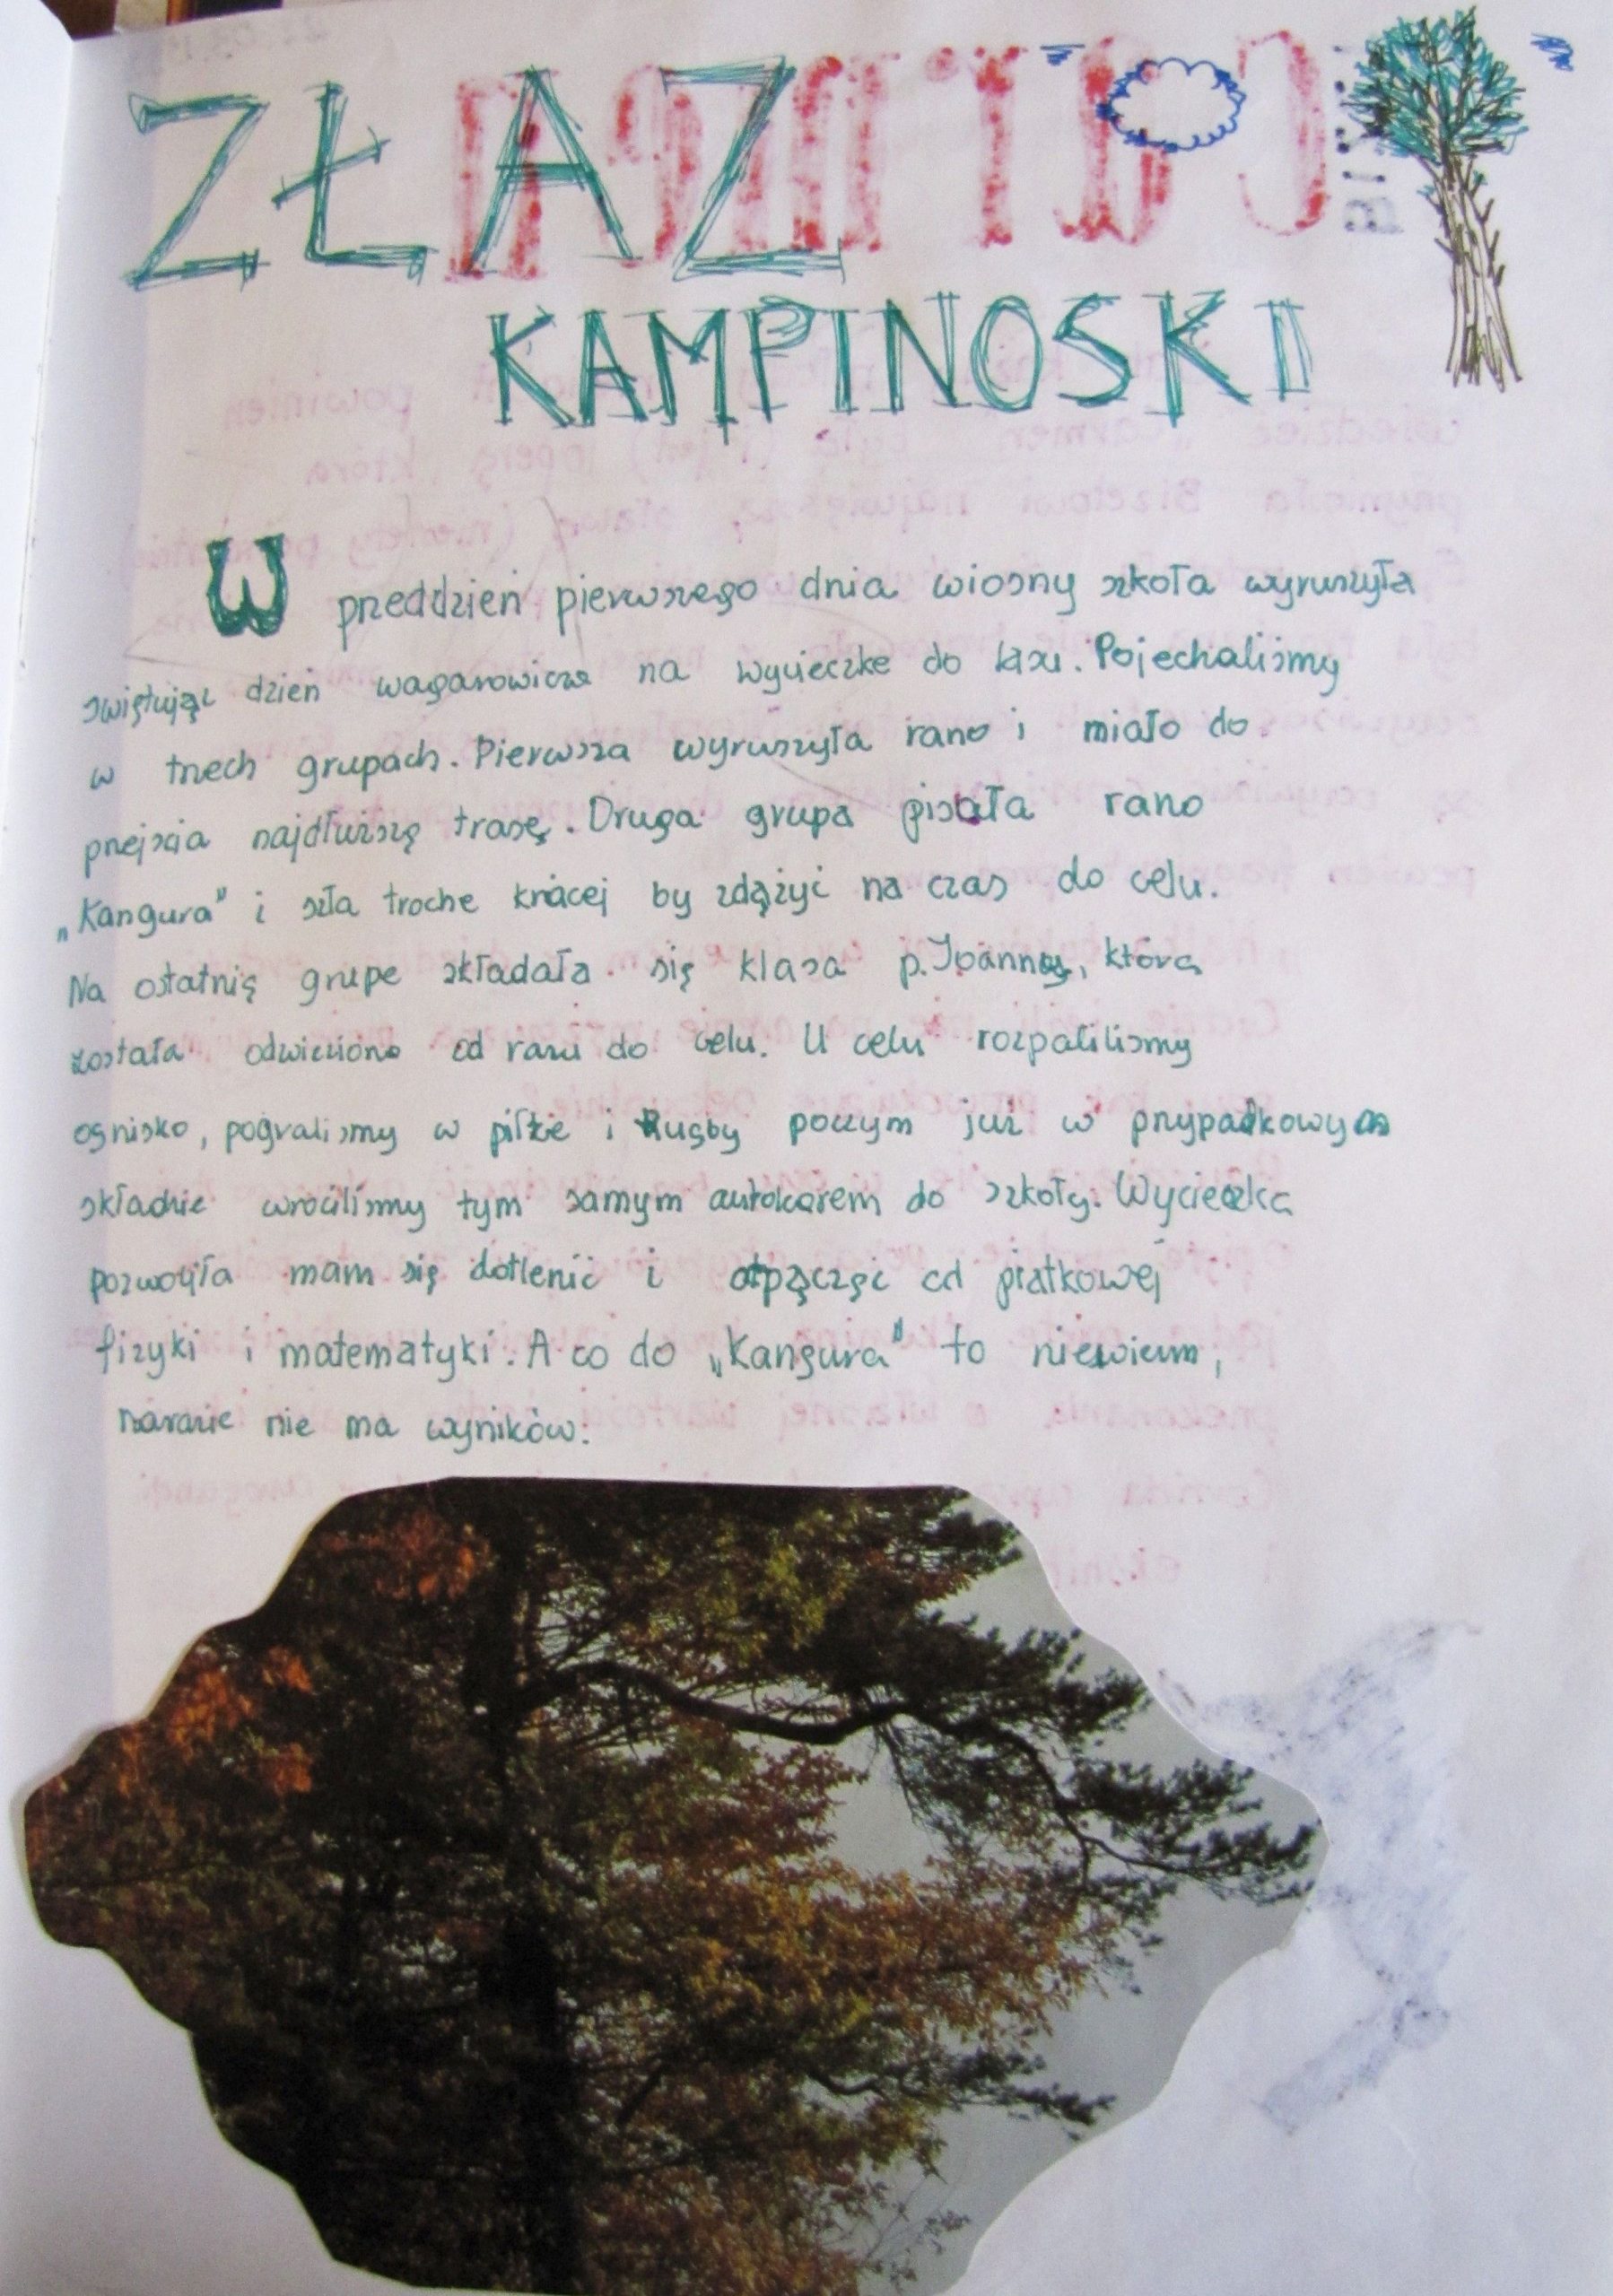 ZŁAZ
KAMPINOSKI
W przeddzień pierwszego dnia wiosny szkoła wyruszyła
swiętując dzień wagarowicza na wycieczke do lasu. Pojechaliśmy
w trzech grupach. Pierwsza wyruszyła rano i miało do
przejscia najdłuższą trasę. Druga grupa pisała rano
„Kangura” i szła troche krócej by zdążyć na czas do celu.
Na ostatnią grupe składała się klasa p. Joanny, która
została odwieziona od razu do celu. U celu rozpalilismy
ognisko, pograliśmy w piłke i Rugby poczym już w przypadkowym
składzie wrócilismy tym samym autokarem do szkoły. Wycieczka
pozwoliła mam się dotlenić i otpącząć od piatkowej
fizyki i matematyki. A co do „Kangura” to niewiem,
narazie nie ma wyników.